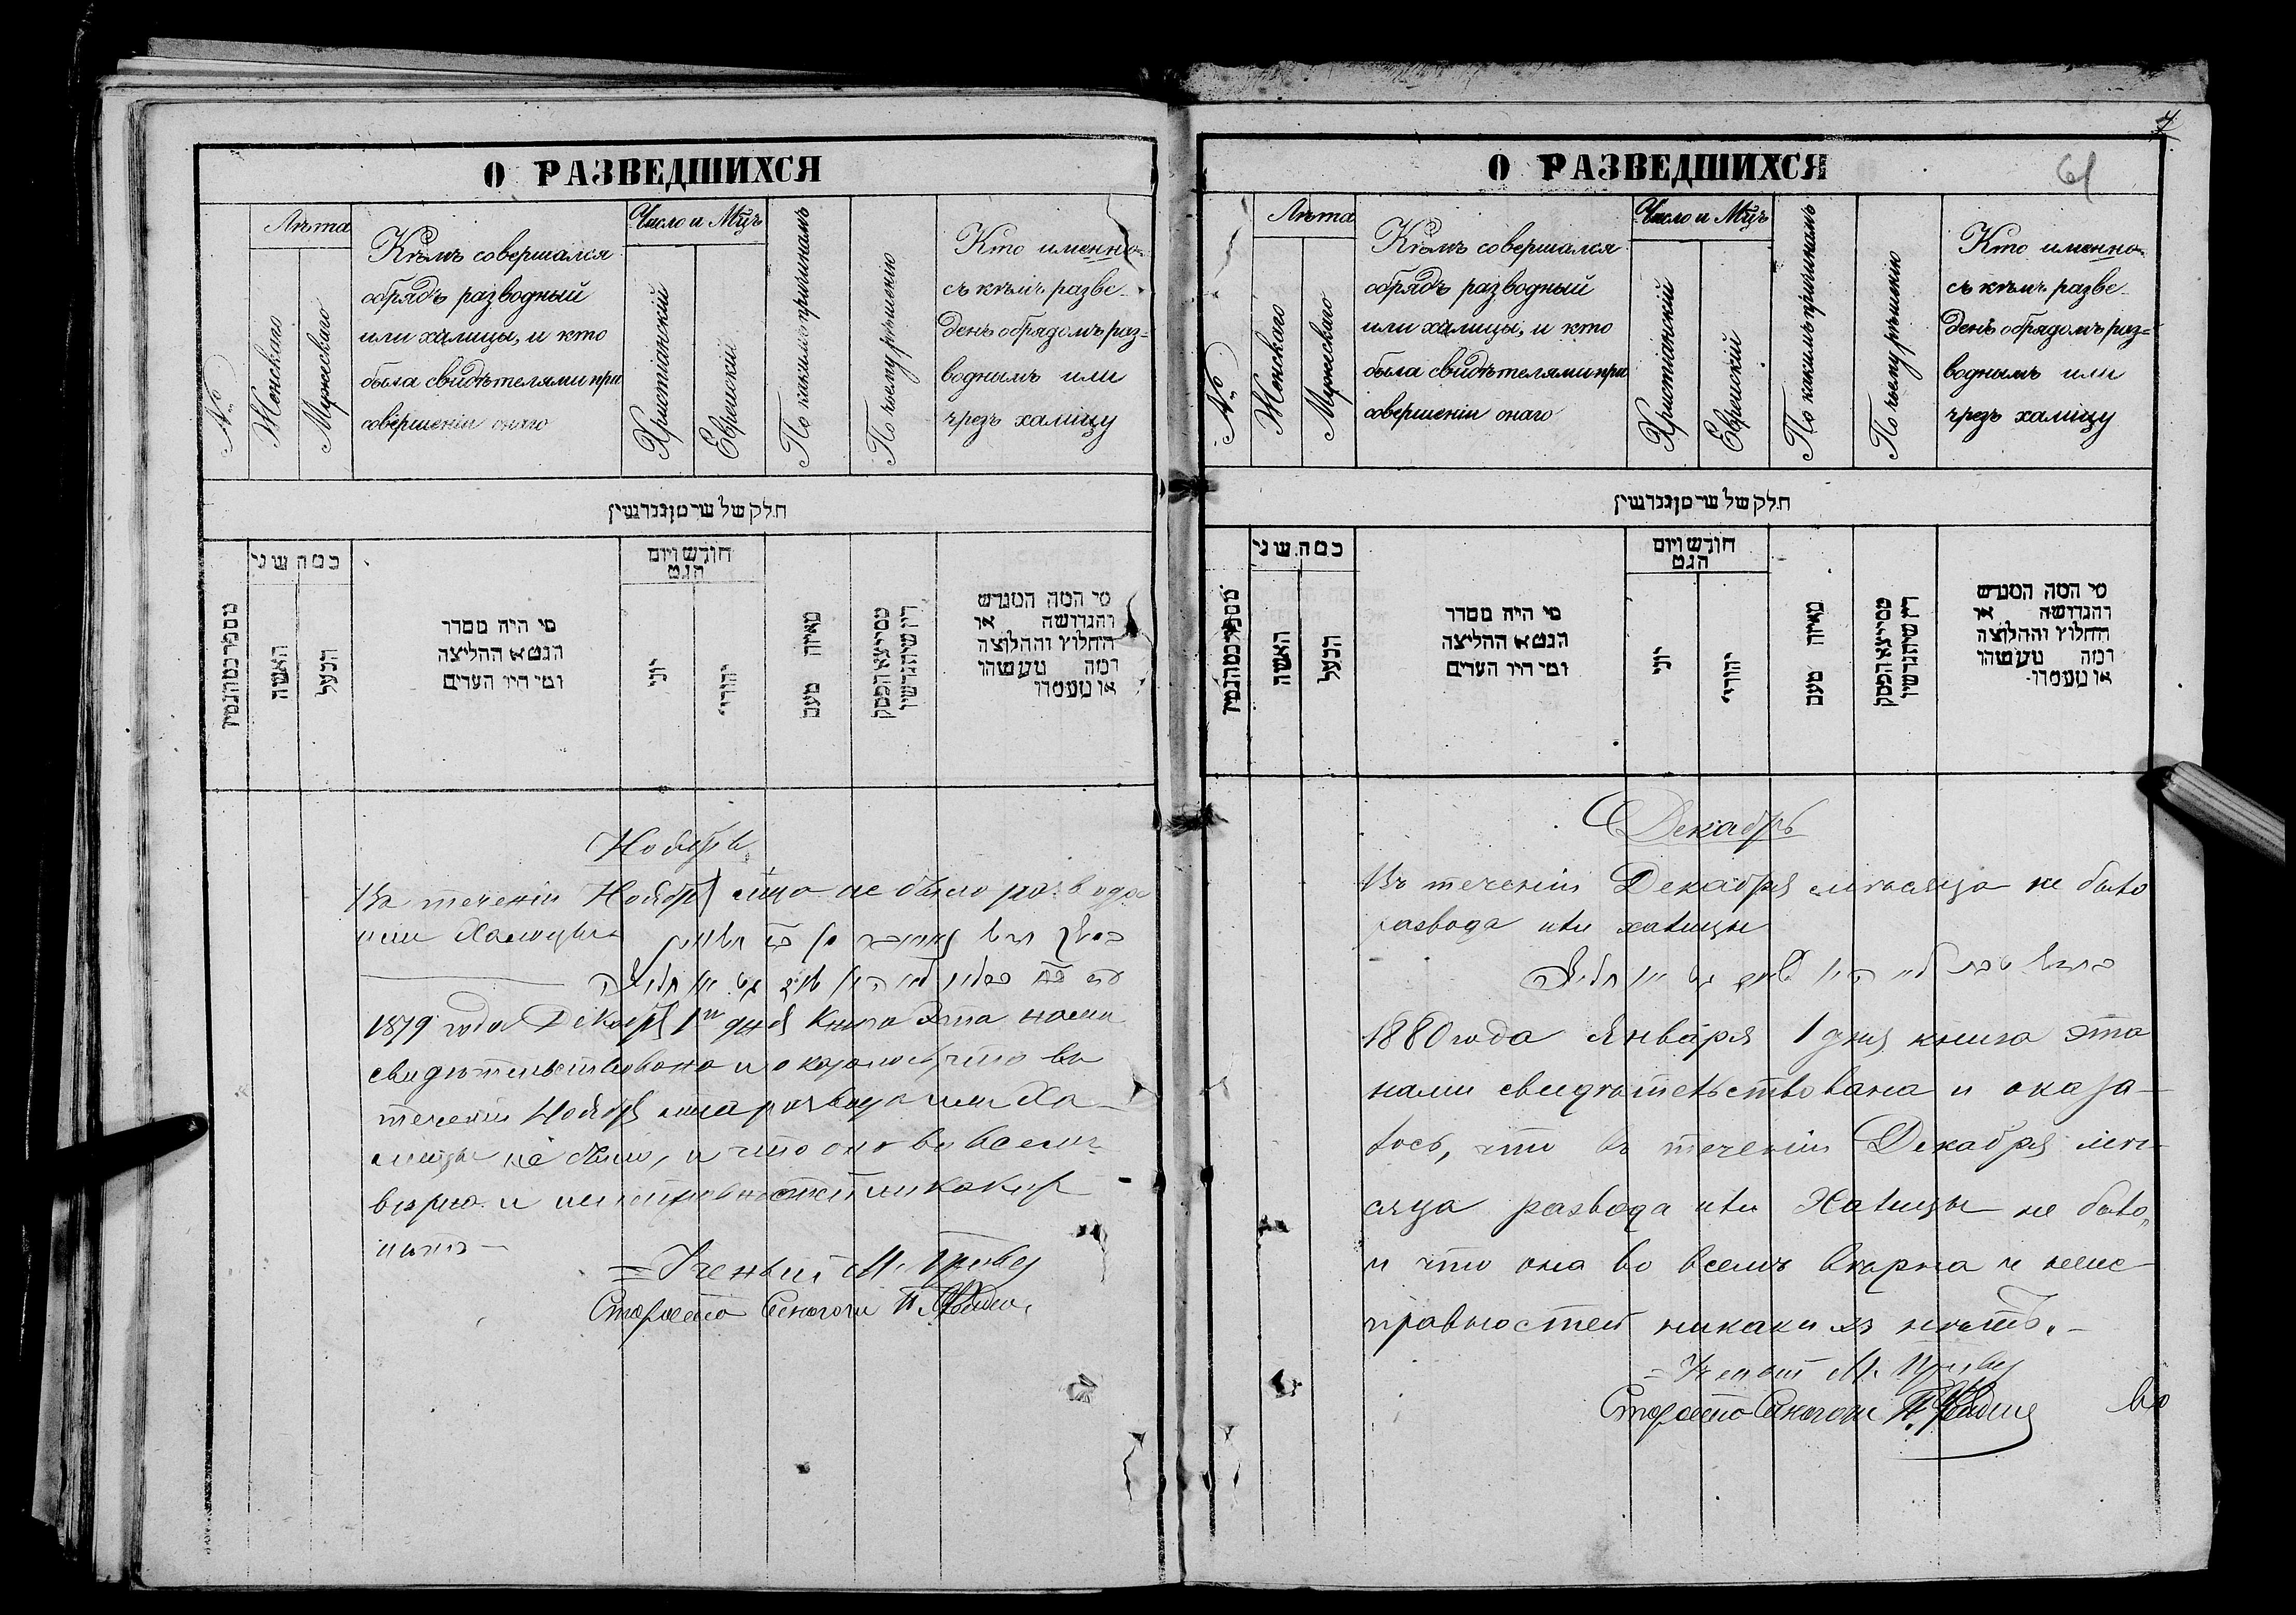 О РАЗВЕДШИХСЯ
№
Лѣта
Женскаго
Мужескаго
Кѣмъ совершался
обрядъ разводный
или халицы, и кто
были свидѣтелями при
совершеніи онаго
Число и Мцъ
Христіанскій
Еврейскій
По какимъ причинамъ
По чьему рѣшенію
Кто именно
съ кѣмъ разве-
денъ обрядомъ раз-
воднымъ или
чрезъ халицу
חלק שלישי מן גרושין
מספר כמה גטין
כמה שני
האשה
הבעל
מי היה מסדר
הגט או החליצה
ומי היו העדים
חודש ויום
הגט
יוני
יהודי
מאיזה טעם
ממי יצא הפסק
דין שיתגרשו
מי המה המגרש
והגרושה או
החלוץ והחלוצה
ומה מעשהו
או מעמדו
Ноябрь
Въ теченіи Ноября мца не было развода
или Халицы
1879 года Декабря 1го дня книга эта нами
свидѣтельствована и оказалось, что въ
теченіи Ноября мца развода или Ха-
лицы не было, и что она во всемъ
вѣрна и неисправностей никакихъ
нѣтъ —
= Ученый М.
Староста Синагоги
7
61
О РАЗВЕДШИХСЯ
№
Лѣта
Женскаго
Мужескаго
Кѣмъ совершался
обрядъ разводный
или халицы, и кто
были свидѣтелями при
совершеніи онаго
Число и Мцъ
Христіанскій
Еврейскій
По какимъ причинамъ
По чьему рѣшенію
Кто именно
съ кѣмъ разве-
денъ обрядомъ раз-
воднымъ или
чрезъ халицу
חלק שלישי מן גרושין
מספר כמה גטין
כמה שני
האשה
הבעל
מי היה מסדר
הגט או החליצה
ומי היו העדים
חודש ויום
הגט
יוני
יהודי
מאיזה טעם
ממי יצא הפסק
דין שיתגרשו
מי המה המגרש
והגרושה או
החלוץ והחלוצה
ומה מעשהו
או מעמדו
Декабрь
Въ теченіи Декабря мѣсяца не было
развода или халицы
1880 года Января 1 дня книга эта
нами свидѣтельствована и оказа-
лось, что въ теченіи Декабря мѣ-
сяца развода или Халицы не было,
и что она во всемъ вѣрна и неис-
правностей никакихъ нѣтъ. —
= Ученый М.
Староста Синагоги